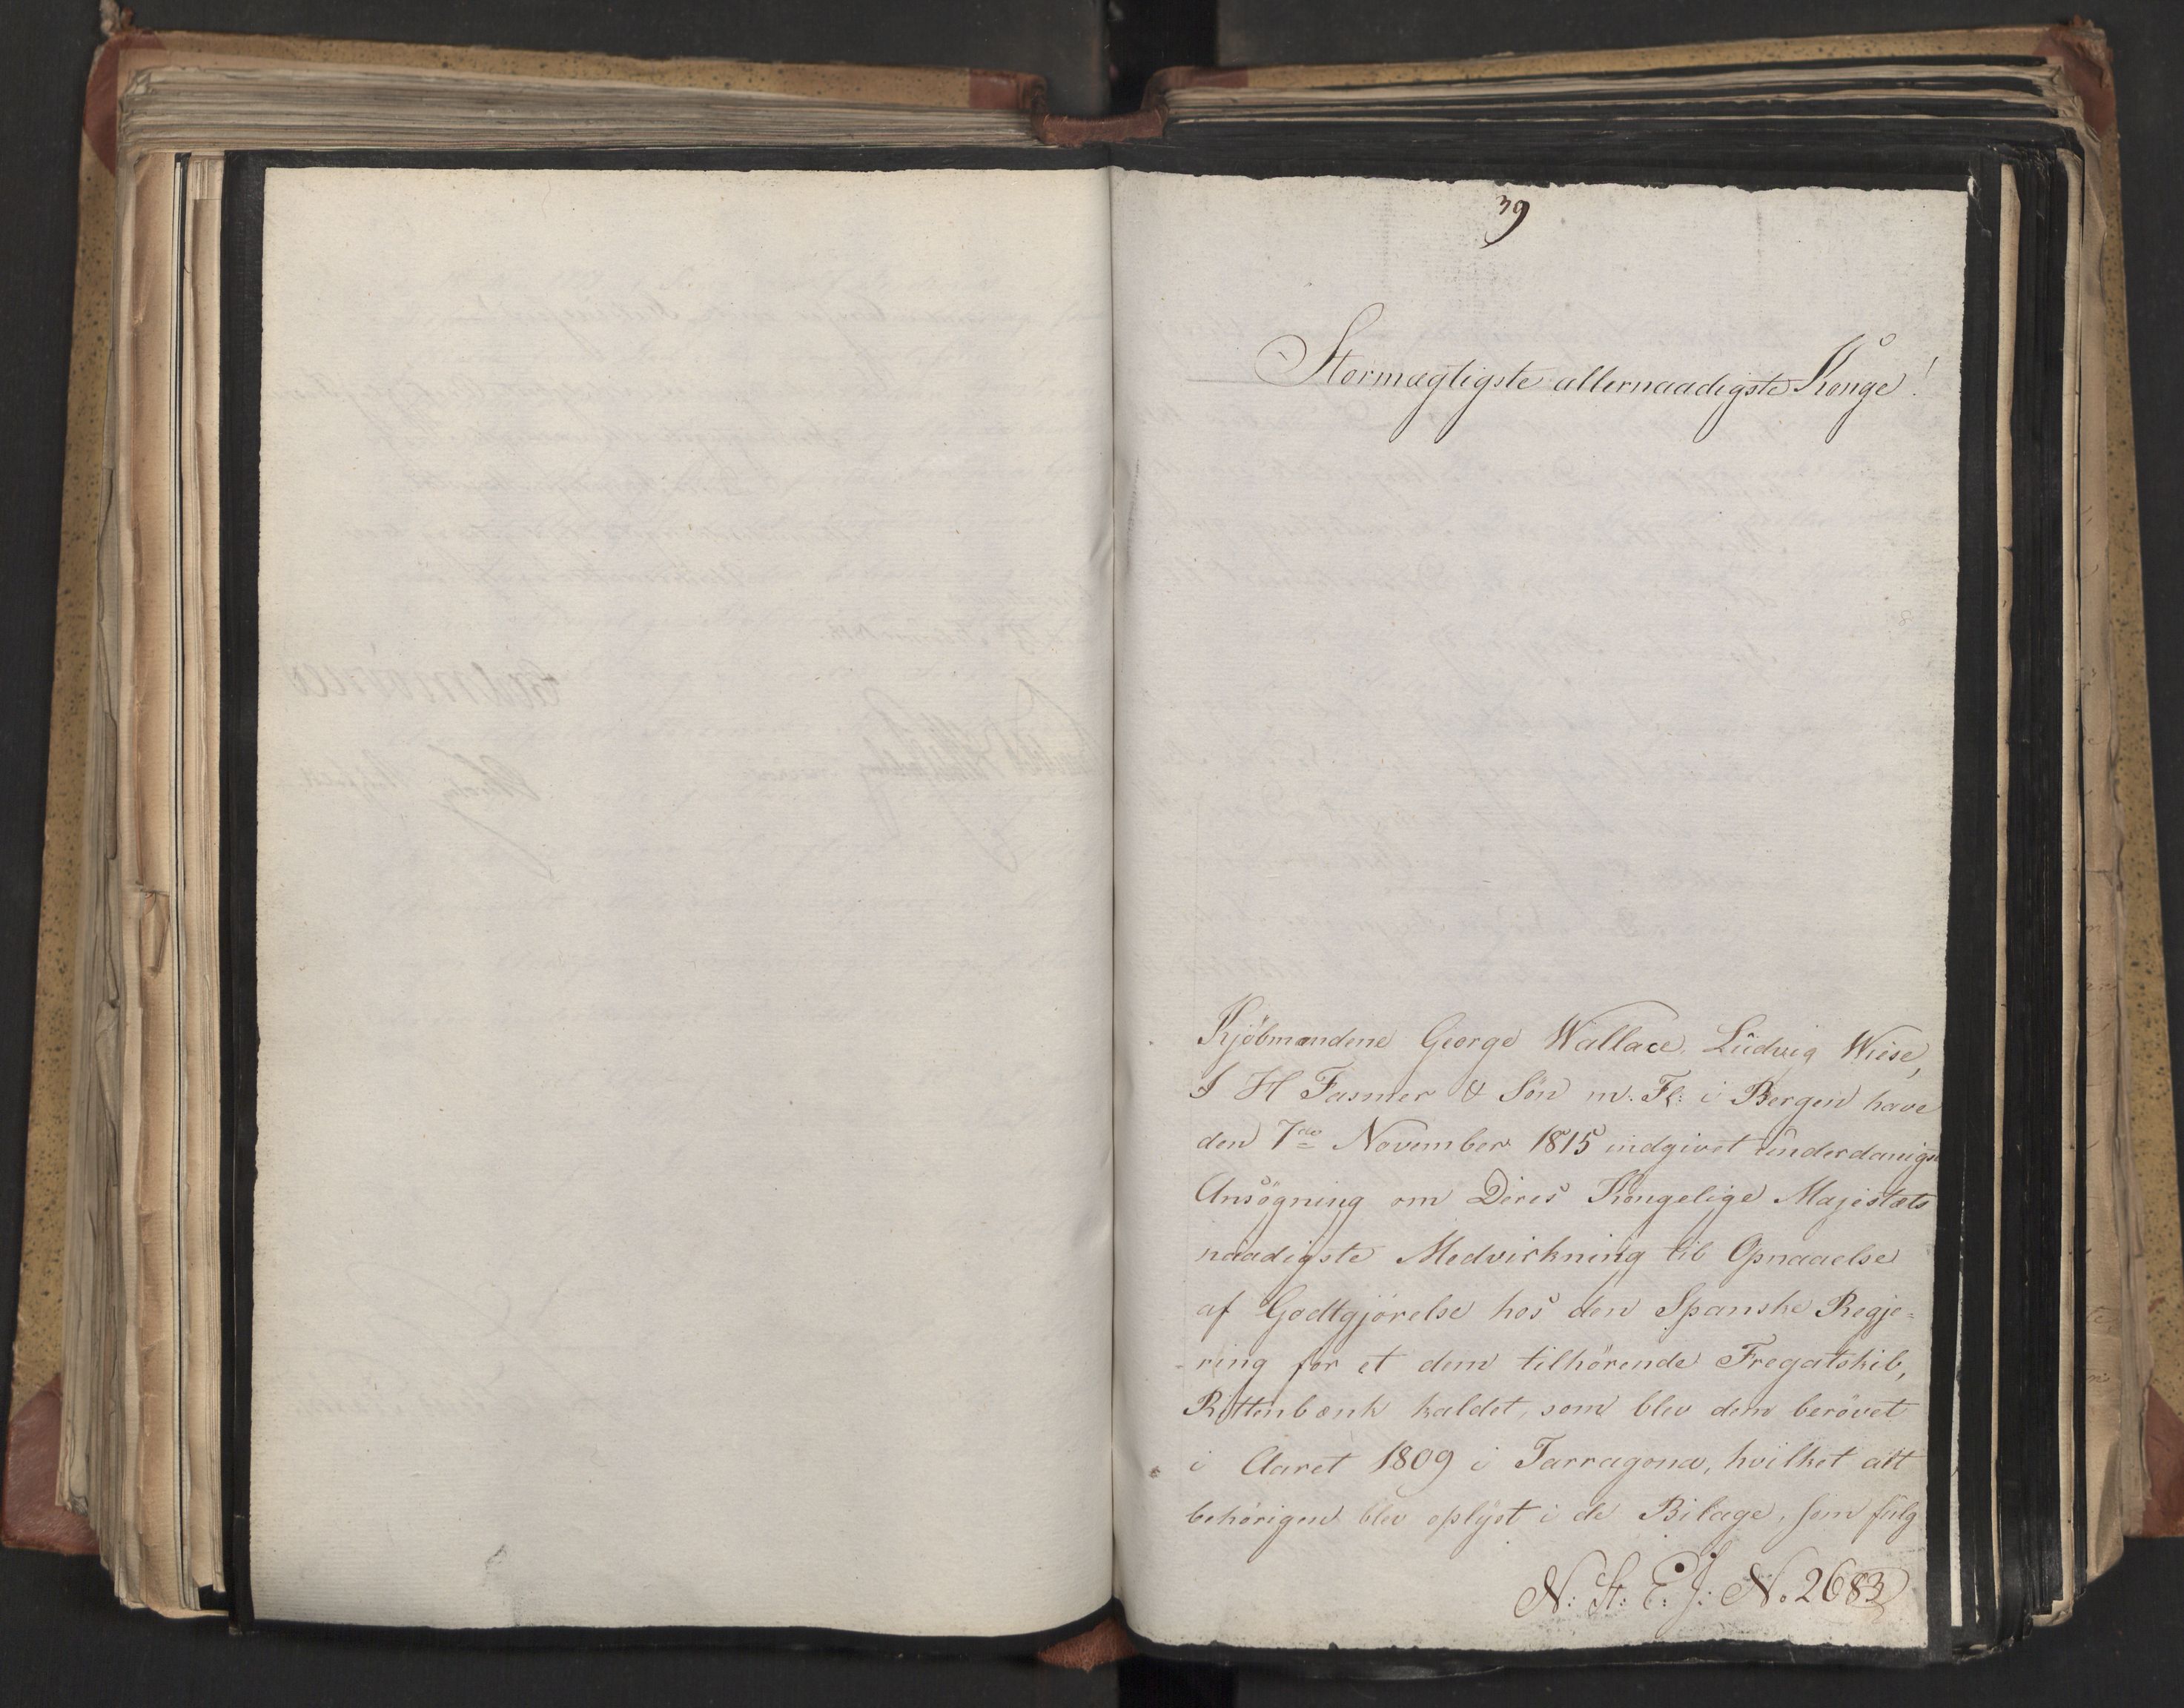 39
Stormægtigste allernaadigste Konge!
Kjöbmændene George Wallace, Ludvig Wiese,
J H Fasmer & Sön m: Fl: i Bergen have
den 7de November 1815 indgivet underdanigst
Ansögning om Deres Kongelige Majestæts
naadigste Medvirkning til Opnaaelse
af Godtgjörelse hos den Spanske Regje=
ring for et dem tilhörende Fregatskib,
Rittenbenk kaldet, som blev dem berövet
i Aaret 1809 i Tarragona, hvilket alt
behörigen blev oplyst i de Bilage, som fulg
N: St: E. J: No. 2683